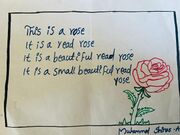 This is a rose
It is a read rose
it is a beautiful read rose
It is a small beautiful read
rose
Muhammad